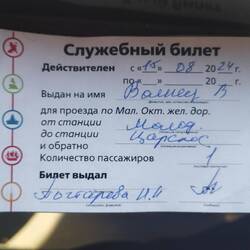 Служебный билет
Действителен с «15» 08 2024г.
по « » 20 г.
Выдан на имя Волнец В
для проезда по Мал. Окт. жел. дор.
от станции Молод.
до станции Царскос.
и обратно
Количество пассажиров 1
Билет выдал